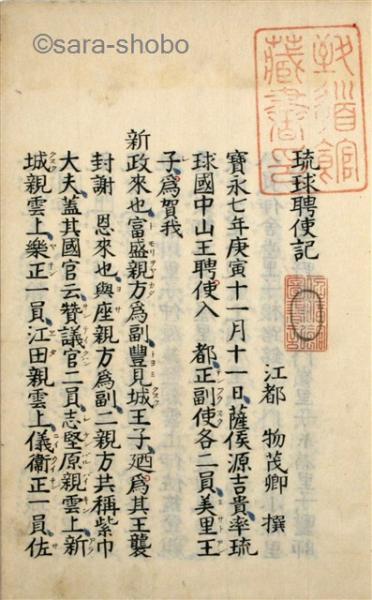 ©sara-shobo
致道館
藏書印
琉球聘使記
江都 物茂卿 撰
寶永七年庚寅十一月十一日薩侯源吉貴率琉
球國中山王聘使入 都正副使各二員美里王
子爲賀我
新政來也富盛親方爲副豐見城王子廼爲其王襲
封謝 恩來也與座親方爲副二親方共稱紫巾
大夫蓋其國官云贊議官二員志堅原親雲上新
城親雲上樂正一員江田親雲上儀衛正一員佐